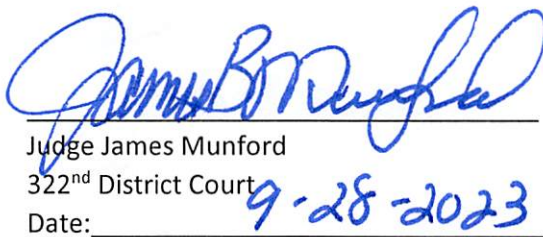 James B Munford
Judge James Munford
322nd District Court
Date: 9-28-2023